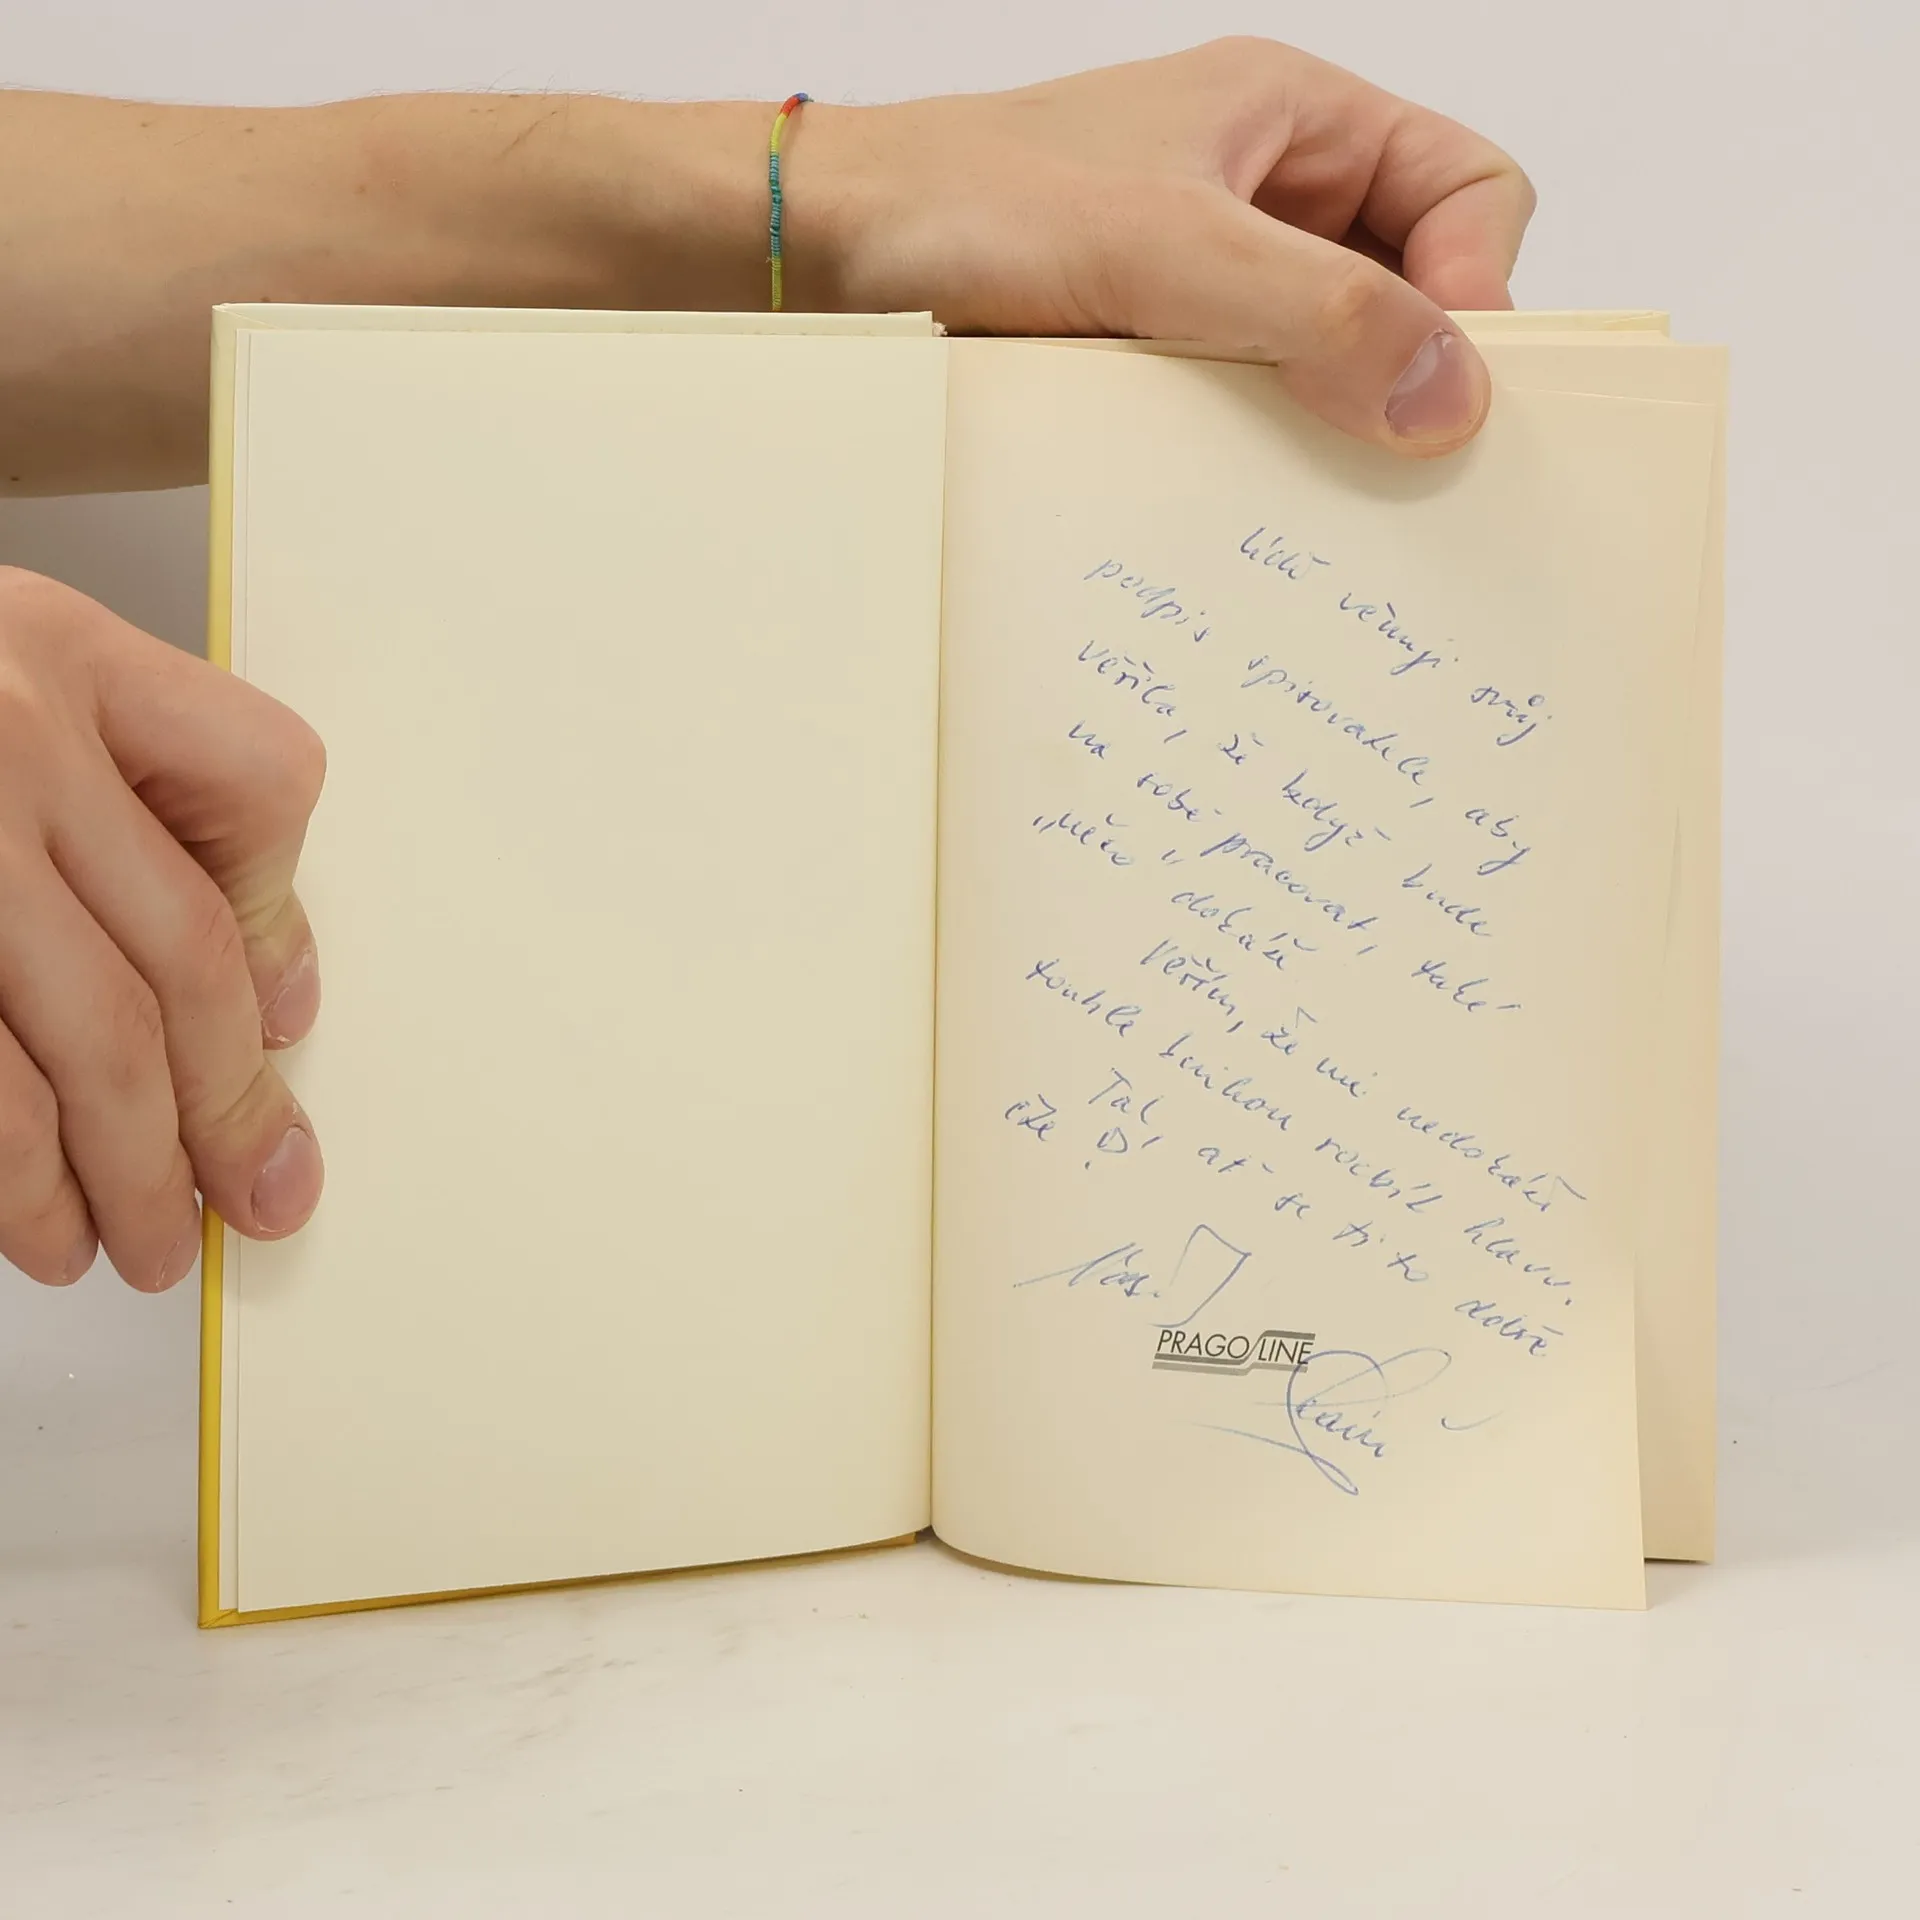 Lídě věnuji svůj
podpis spisovatele, aby
věřila, že když bude
na sobě pracovat, také
„něco" dokáže
Věřím, že mi nedokáže
touhle knihou rozbít hlavu.
Tak, ať se ti to dobře
čte!
PRAGOLINE